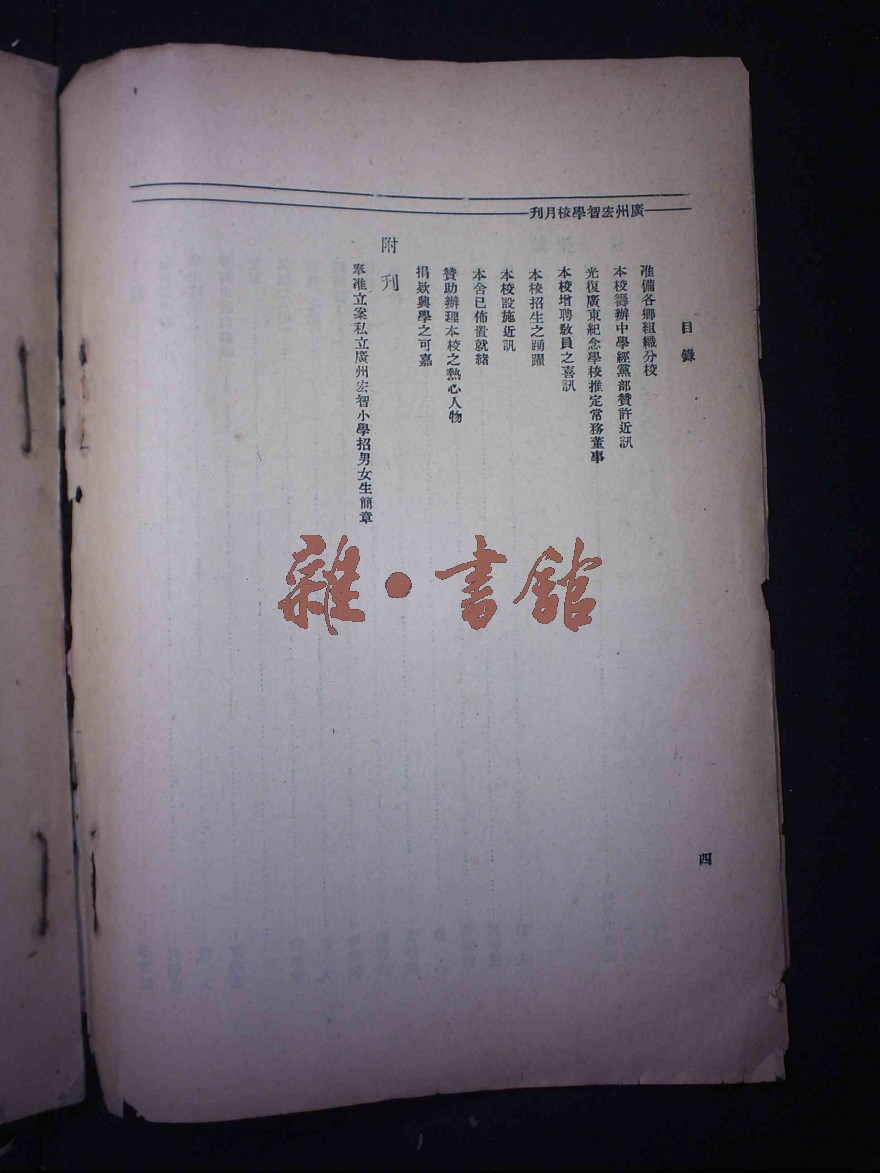 廣州宏智學校月刊
目錄
四
准備各鄉組織分校
本校籌辦中學經黨部贊許近訊
光復廣東紀念學校推定常務董事
本校增聘敎員之喜訊
本校招生之踴躍
本校設施近訊
本舍已佈置就緒
贊助辦理本校之熱心人物
捐欵興學之可嘉
附刊
奉准立案私立廣州宏智小學招男女生簡章
雜·書館